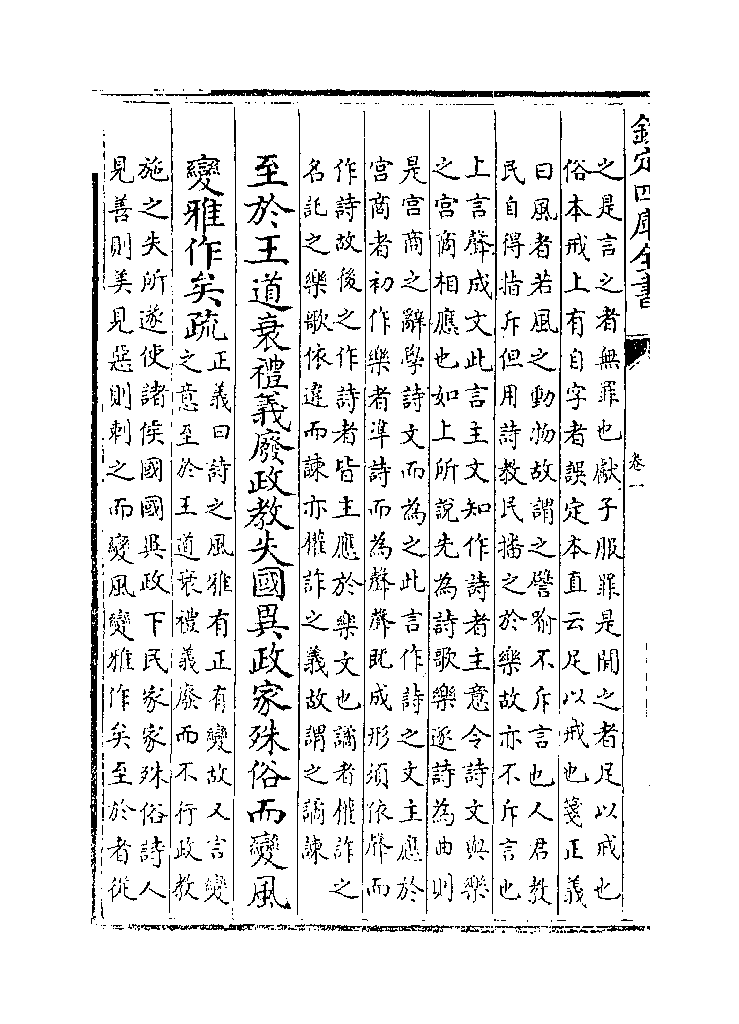 欽定四庫全書
卷一
之是言之者無罪也獻子服罪是聞之者足以戒也
俗本戒上有自字者誤定本直云足以戒也箋正義
曰風者若風之動物故謂之譬喻不斥言也人君教
民自得指斥但用詩教民播之於樂故亦不斥言也
上言聲成文此言主文知作詩者主意令詩文與樂
之宮商相應也如上所說先為詩歌樂逐詩為曲則
是宮商之辭學詩文而為之此言作詩之文主應於
宮商者初作樂者準詩而為聲聲既成形須依聲而
作詩故後之作詩者皆主應於樂文也譎者權詐之
名託之樂歌依違而諫亦權詐之義故謂之譎諫
至於王道衰禮義廢政教失國異政家殊俗而變風
變雅作矣疏
正義曰詩之風雅有正有變故又言變
之意至於王道衰禮義廢而不行政教
施之失所遂使諸侯國國異政下民家家殊俗詩人
見善則美見惡則刺之而變風變雅作矣至於者從